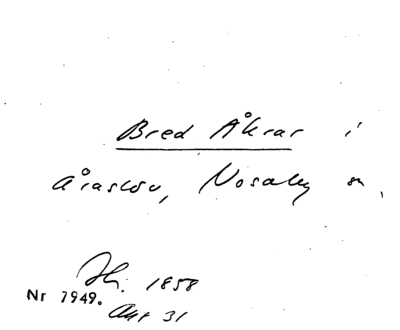 Bred Åkrar i
Åraslöv, Nosaby sn,
Jh. 1858
Nr 7949.
Akt 31